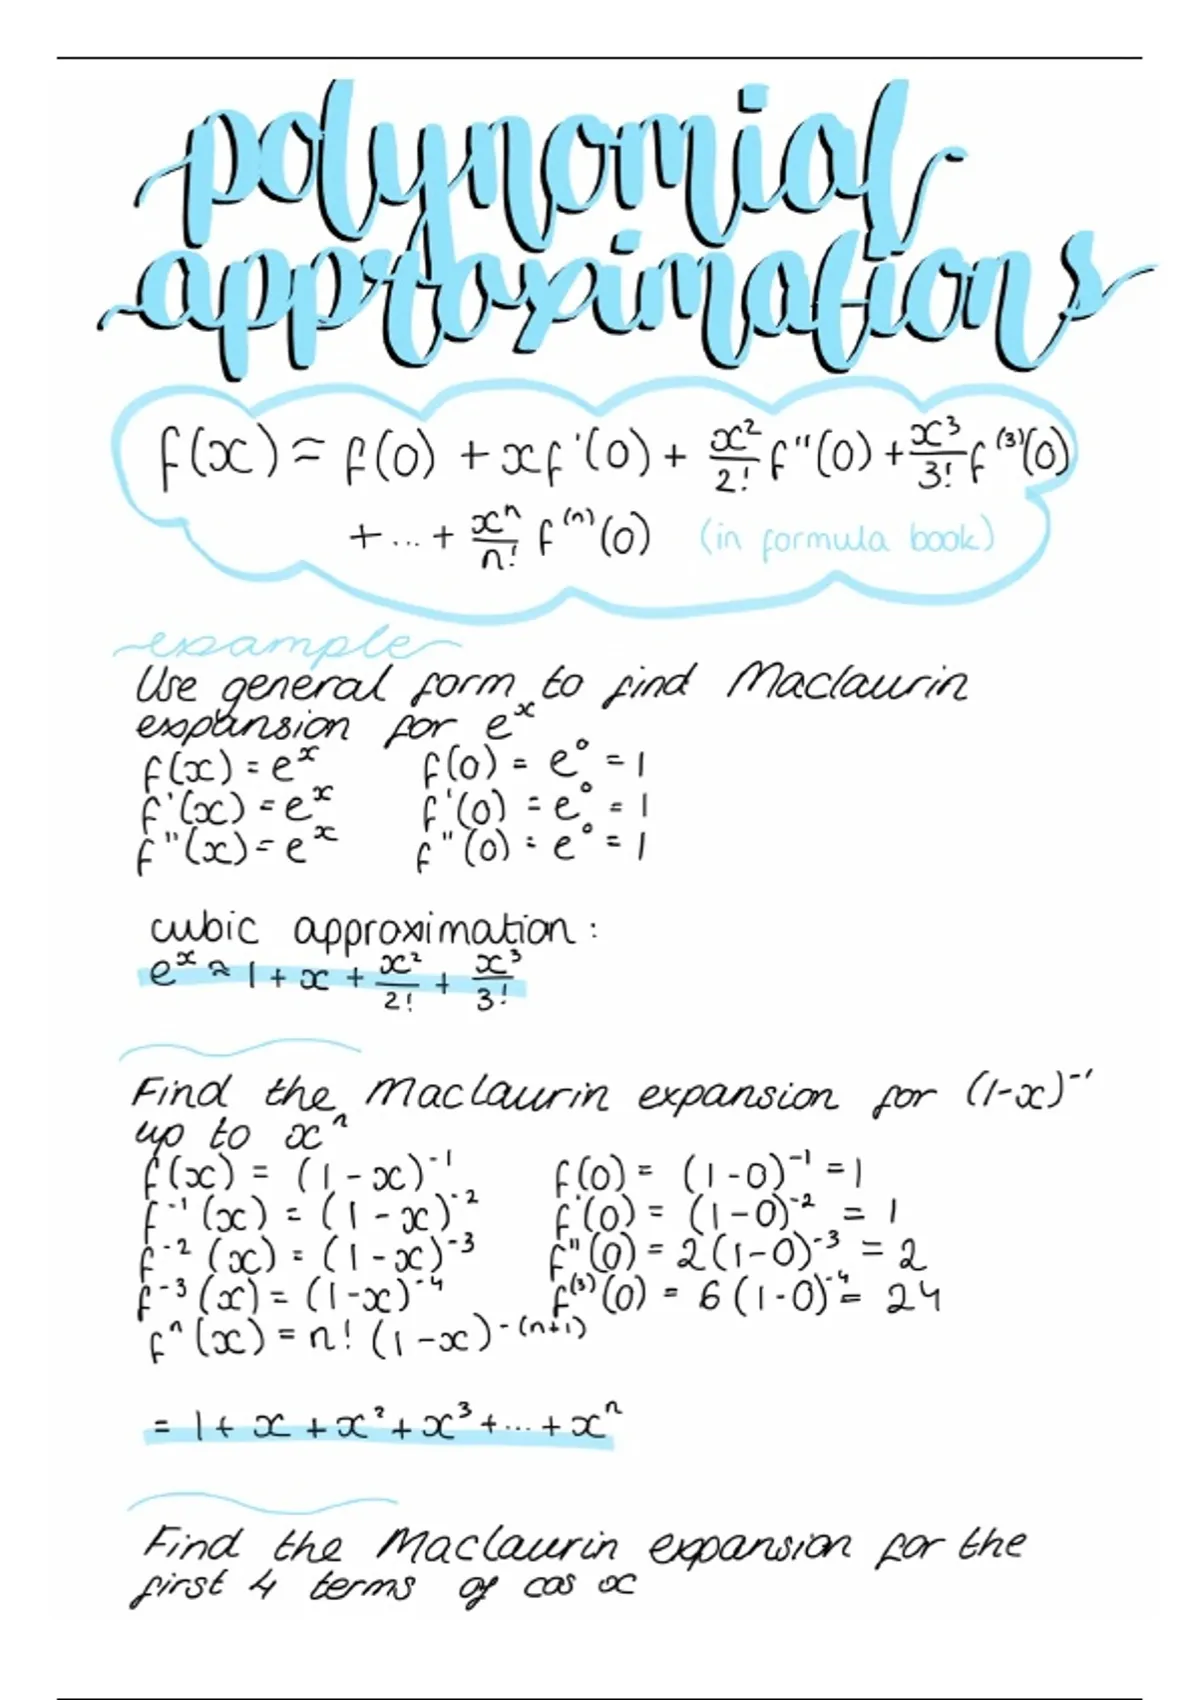 polynomial
approximations
f(x) ≈ f(0) + xf'(0) + x²/2! f''(0) + x³/3! f⁽³⁾(0)
+ ... + xⁿ/n! f⁽ⁿ⁾(0) (in formula book)
example
Use general form to find Maclaurin
expansion for eˣ
f(x) = eˣ f(0) = e⁰ = 1
f'(x) = eˣ f'(0) = e⁰ = 1
f''(x) = eˣ f''(0) = e⁰ = 1
cubic approximation:
eˣ ≈ 1 + x + x²/2! + x³/3!
Find the Maclaurin expansion for (1-x)⁻¹
up to xⁿ
f(x) = (1-x)⁻¹ f(0) = (1-0)⁻¹ = 1
f⁻¹(x) = (1-x)⁻² f'(0) = (1-0)⁻² = 1
f⁻²(x) = (1-x)⁻³ f''(0) = 2(1-0)⁻³ = 2
f⁻³(x) = (1-x)⁻⁴ f⁽³⁾(0) = 6(1-0)⁻⁴ = 24
fⁿ(x) = n! (1-x)⁻⁽ⁿ⁺¹⁾
= 1 + x + x² + x³ + ... + xⁿ
Find the Maclaurin expansion for the
first 4 terms of cos x